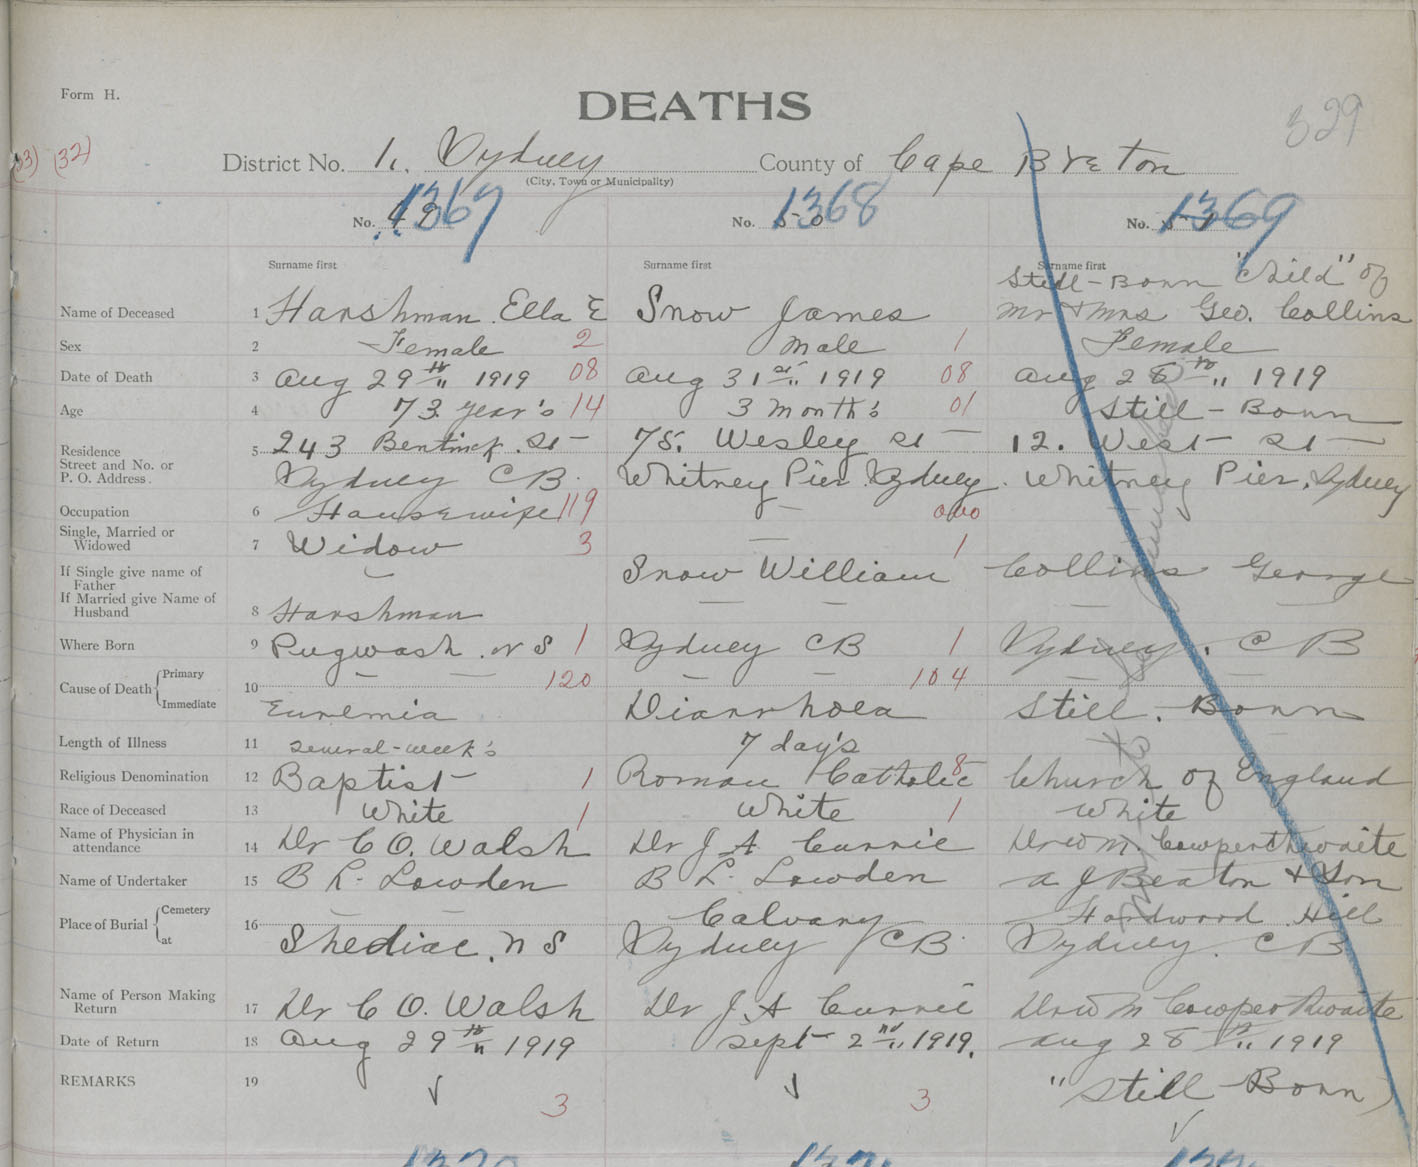 Form H.
DEATHS
329
(33) (32)
District No. 1. Sydney County of Cape Breton
(City, Town or Municipality)
No. 49 1367 No. 50 1368 No. 51 1369
Surname first Surname first Surname first
Still-Born "Child" of
Name of Deceased 1 Harshman Ella E Snow James Mr & Mrs Geo. Collins
Sex 2 Female 2 Male 1 Female
Date of Death 3 Aug 29th 1919 08 Aug 31st 1919 08 Aug 28th 1919
Age 4 73 year's 14 3 month's 01 Still-Born
Residence 5 243 Bentinck St 75. Wesley St 12. West St
Street and No. or
P. O. Address. Sydney C B. Whitney Pier Sydney. Whitney Pier, Sydney
Occupation 6 Housewife 119 — 000
Single, Married or
Widowed 7 Widow 3 — 1
If Single give name of
Father — Snow William Collins George
If Married give Name of
Husband 8 Harshman — — — —
Where Born 9 Pugwash. N S 1 Sydney CB 1 Sydney. C B
Cause of Death Primary 10 — — 120 — — 104 — —
Immediate Euremia Diarrhoea Still. Born
Length of Illness 11 several-week's 7 day's
Religious Denomination 12 Baptist 1 Roman Catholic 8 Church of England
Race of Deceased 13 White 1 White 1 White
Name of Physician in
attendance 14 Dr C O. Walsh Dr J A Currie Dr W M. Cowperthwaite
Name of Undertaker 15 B L. Lowden B L. Lowden A J Beaton & Son
Place of Burial Cemetery 16 — — Calvary Hardwood Hill
at Shediac. N S Sydney C B. Sydney. C B
Name of Person Making
Return 17 Dr C O. Walsh Dr J A Currie Dr W M Cowperthwaite
Date of Return 18 Aug 29th 1919 Sept 2nd 1919. Aug 28th 1919
REMARKS 19 3 3 "Still-Born)
1370 1371